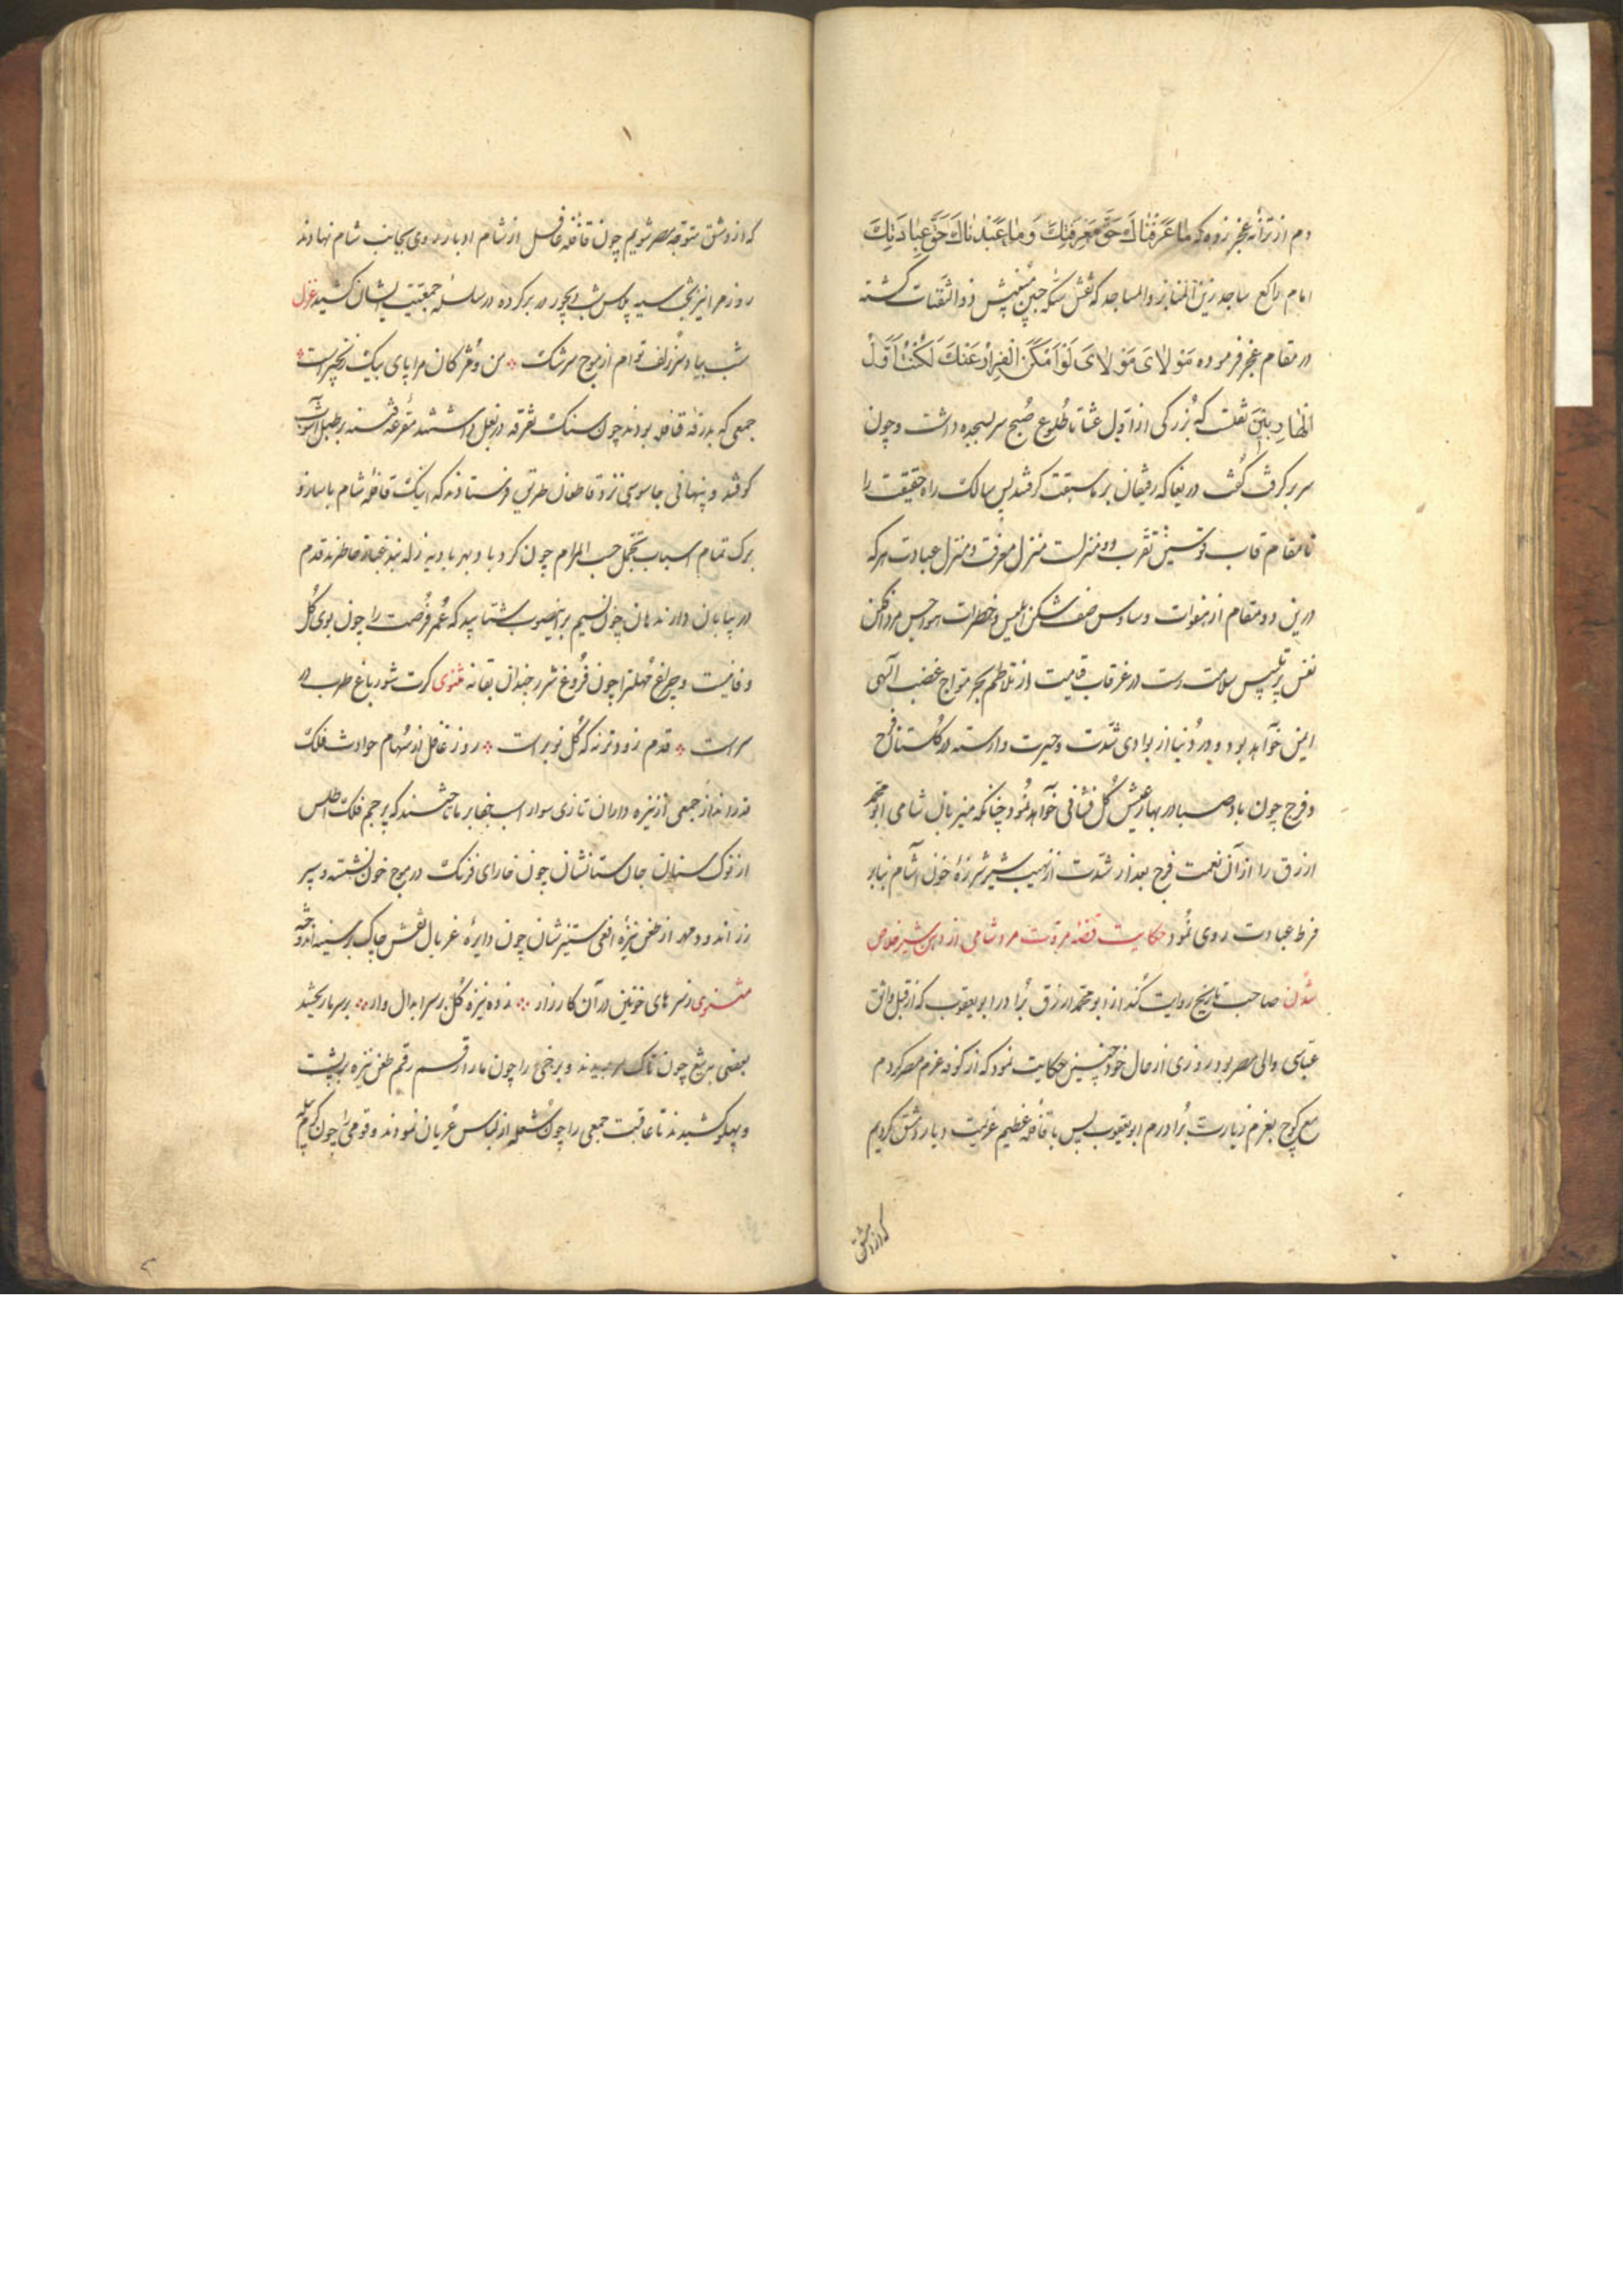 دم از ترانهٔ عجز زده که ما عَرَفْناكَ حَقَّ مَعْرِفَتِكَ وَما عَبَدْناكَ حَقَّ عِبادَتِكَ
امام راکع ساجد زین المنابر والمساجد که نقش سکه جبین مبینش ذوالثفنات گشته
در مقام عجز فرموده مَوْلايَ مَوْلايَ لَوْ اَمْكَنَ الْفِرارُ عَنْكَ لَكُنْتُ اَوَّلَ
الْهارِبینَ نقلست که بُزرکی از اوّل عشا تا طُلوع صُبح سر بسجده داشت و چون
سر بر کرفت گفت دریغا که رفیقان بر ما سبقت کرفتند پس سالک راه حقیقت را
تا مقام قاب قوسین تقرب دو منزلست منزل معرفت و منزل عبادت هر که
درین دو مقام از هفوات وساوس صف شکن ابلیس و خطرات هواجس مرد افکن
نفس پر تلبیس سلامت رست در غرقاب قیامت از تلاطم بحر موّاج غضب آلهی
ایمن خواهد بود و در دُنیا از بوادی شدّت و حیرت وارسته در کُلستان فرح
و فرج چون باد صبا در بهار عیش کُل فشانی خواهد نمود چنانکه میزبان شامی ابو محمد
ازرق را از آن نعمت فرج بعد از شدّت از نهیب شیر شرزهٔ خون آشام بنابر
فرط عبادت روی نمود حکایت قصّه مروّت مرد شامی از دهن شیر خلاص
شدن صاحب تاریخ روایت کند از ابو محمد ازرق برادر ابو یعقوب که از قبل واثق
عبّاسی والی مصر بود روزی از حال خود چنین حکایت نمود که از کوفه عزم مصر کردم
مع کوچ بعزم زیارت برادرم ابو یعقوب پس با قافله عظیم عزیمت دیار دمشق کردیم
که از دمشق
که از دمشق متوجه مصر شویم چون قافله غافل از شام ادبار روی بجانب شام نهادند
روز مرا نیز بخت سیه پلاس شب دیجور در بر کرده در سلسلهٔ جمعیت ایشان کشید غزل
شب بیاد سر زلف توام از موج سرشک من و مژکان مرا پای بیک زنجیر است
جمعی که بدرقهٔ قافله بودند چون سنک تفرقه در بغل داشتند مقرعه فتنه بر طبل آشوب
کوفتند و پنهانی جاسوسی نزد قاطعان طریق فرستادند که اینک قافله شام با ساز و
برک تمام اسباب تجمل حسب المرام چون کرد باد بهر بادیه قدم
در بیابان دارند هان چون نسیم برینصوب بشتابید که عُمر فُرصت را چون بوی کُل
وفا نیست و چراغ مُهلترا چون فُروغ شرر چندان بقا نه مثنوی کرت شور باغ طرب در
سر است قدم زودتر نه که کُل نوبر است روز غافل از سهام حوادث فلک
جمعی از نیزه داران تازی سوار اسب جفا بر ما که پرچم فلک اطلس
از نوک سنان جان ستانشان چون خارای فرنک در موج خون نشسته و سپر
زر اندود مهر از طعن نیزهٔ افعی ستیزشان چون دایرهٔ غربال نقش چاک بر سینه اندوخته
مثنوی ز سرهای خونین در آن کارزار زده نیزه کُل بر سر ابدال وار بر سر ما ریختند
بعضی بتیغ چون تاک سر بریدند و برخی را چون مار ارقسم رقم طعن نیزه بر پشت
و پهلو کشیدند تا عاقبت جمعی را چون شعله از لباس عُریان نمودند و قومی را چون کرم پیله